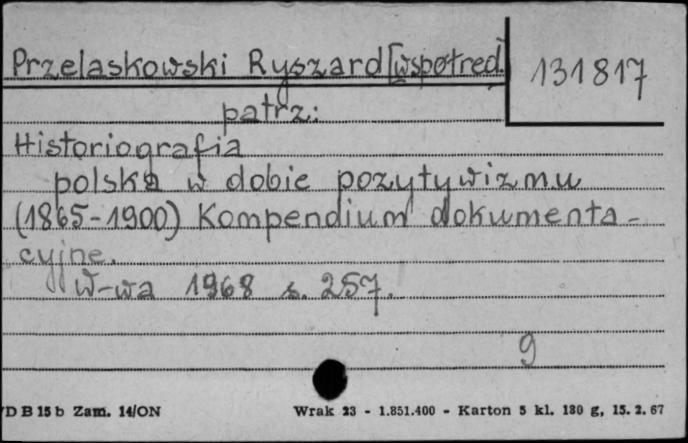 Przelaskowski Ryszard [współred.]
131817
patrz:
Historiografia
polska w dobie pozytywizmu
(1865-1900) Kompendium dokumenta-
cyjne.
W-wa 1968 s. 257.
9
D B 15 b Zam. 14/ON
Wrak 23 - 1.851.400 - Karton 5 kl. 180 g, 15. 2. 67